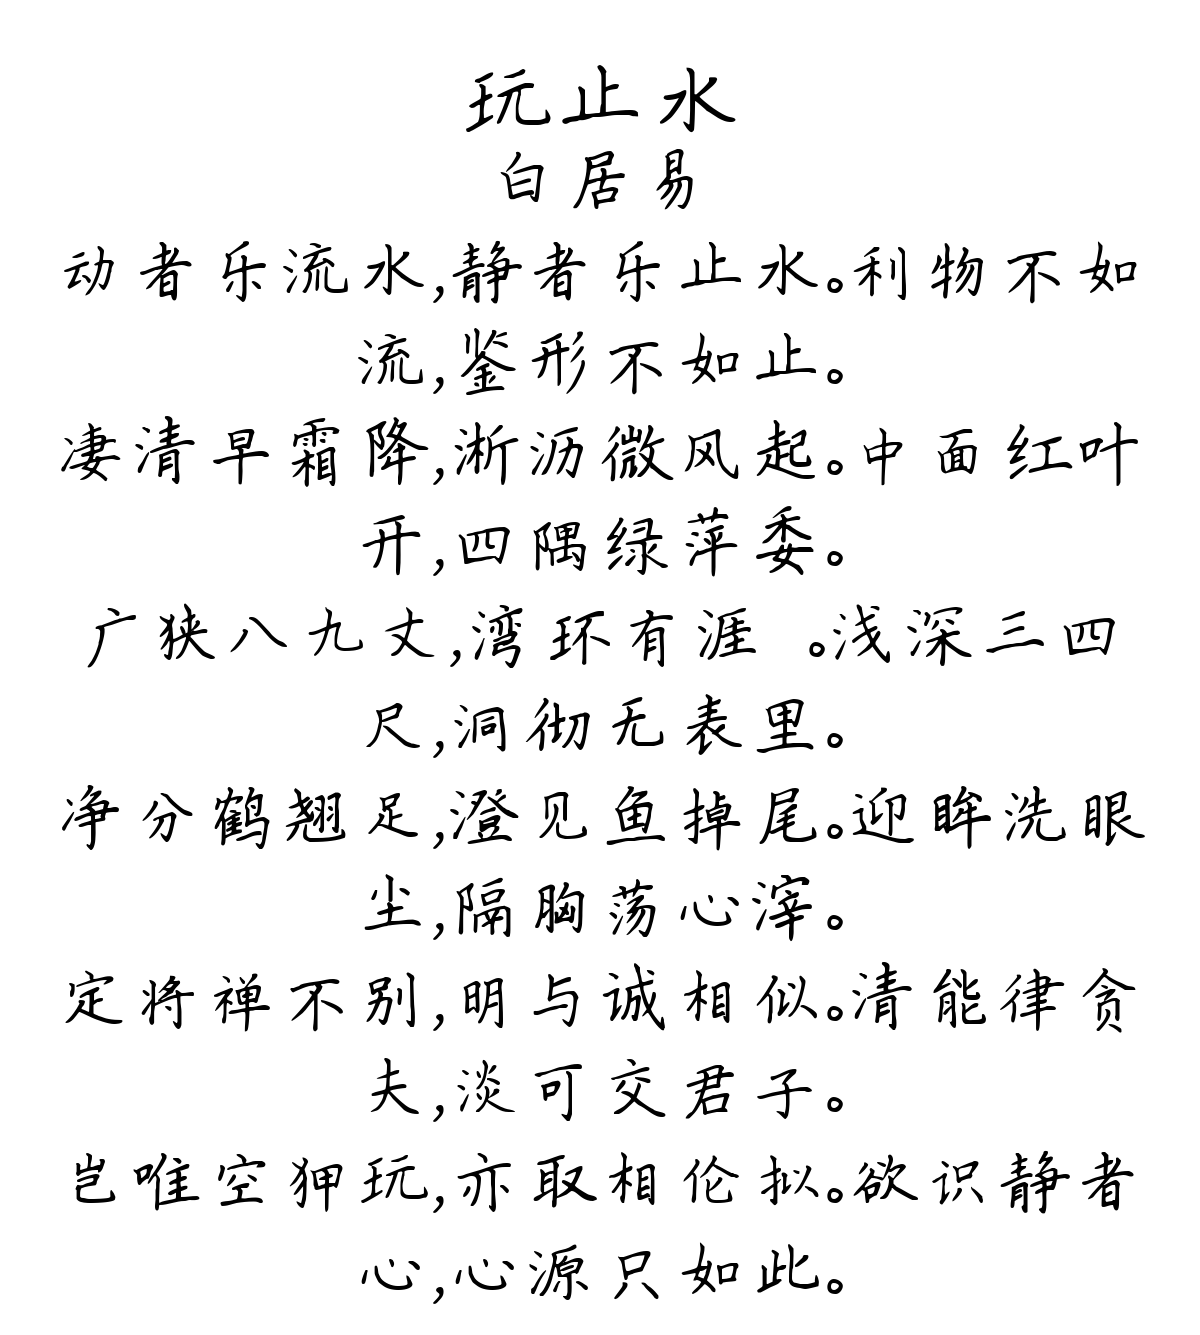 玩止水
白居易
动者乐流水,静者乐止水。利物不如
流,鉴形不如止。
凄清早霜降,淅沥微风起。中面红叶
开,四隅绿萍委。
广狭八九丈,湾环有涯 。浅深三四
尺,洞彻无表里。
净分鹤翘足,澄见鱼掉尾。迎眸洗眼
尘,隔胸荡心滓。
定将禅不别,明与诚相似。清能律贪
夫,淡可交君子。
岂唯空狎玩,亦取相伦拟。欲识静者
心,心源只如此。